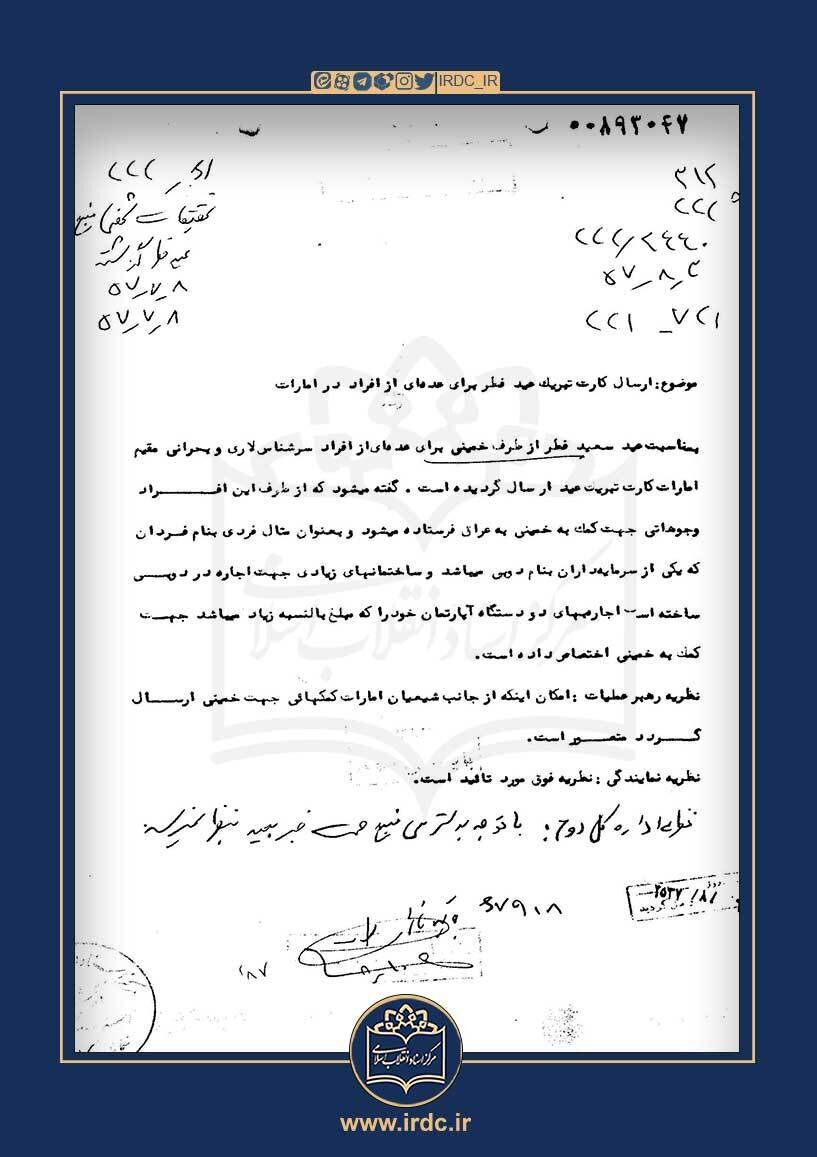 IRDC_IR
۰۰۸۹۳۰۴۷
۳۱۲
۲۲۲
۵۷-۸-۲
۵۷-۷-۸
۵۷-۷-۸
موضوع: ارسال کارت تبریک عید فطر برای عده‌ای از افراد در امارات
بمناسبت عید سعید فطر از طرف خمینی برای عده‌ای از افراد سرشناس لاری و بحرانی مقیم
امارات کارت تبریک عید ارسال گردیده است . گفته میشود که از طرف این افراد
وجوهاتی جهت کمک به خمینی به عراق فرستاده میشود و بعنوان مثال فردی بنام فردان
که یکی از سرمایه‌داران بنام دوبی میباشد و ساختمانهای زیادی جهت اجاره در دوبی
ساخته است اجاره‌بهای دو دستگاه آپارتمان خود را که مبلغ بالنسبه زیاد میباشد جهت
کمک به خمینی اختصاص داده است.
نظریه رهبر عملیات : امکان اینکه از جانب شیعیان امارات کمکهائی جهت خمینی ارسال
گردد متصور است.
نظریه نمایندگی : نظریه فوق مورد تائید است.
نظریه اداره کل دوم : با توجه به دسترسی منبع صحت خبر بعید بنظر نمیرسد
مرکز اسناد انقلاب اسلامی
www.irdc.ir